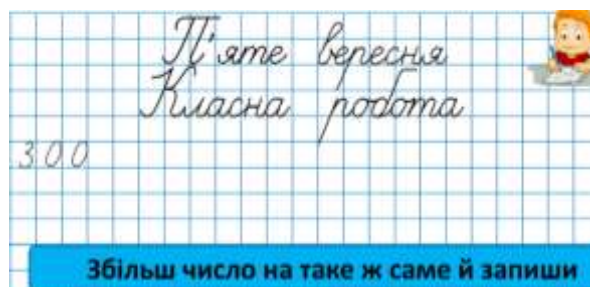 П'яте вересня
Класна робота
300
Збільш число на таке ж саме й запиши